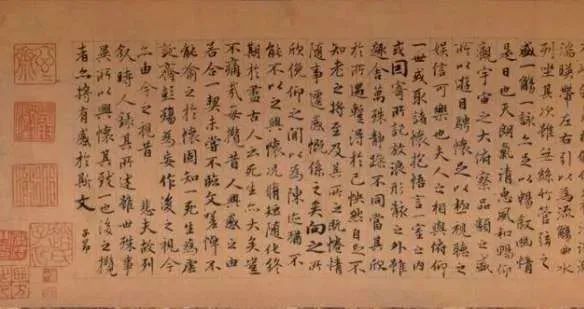 湍暎帶左右引以為流觴曲水
列坐其次雖無絲竹管弦之
盛一觴一詠亦足以暢叙幽情
是日也天朗氣清惠風和暢仰
觀宇宙之大俯察品類之盛
所以遊目騁懷足以極視聽之
娛信可樂也夫人之相與俯仰
一世或取諸懷抱悟言一室之內
或因寄所託放浪形骸之外雖
趣舍萬殊靜躁不同當其欣
於所遇暫得於己怏然自足不
知老之將至及其所之既惓情
隨事遷感慨係之矣向之所
欣俛仰之間以為陳迹猶不
能不以之興懷況脩短隨化終
期於盡古人云死生亦大矣豈
不痛哉每攬昔人興感之由
若合一契未嘗不臨文嗟悼不
能喻之於懷固知一死生為虛
誕齊彭殤為妄作後之視今
亦由今之視昔 悲夫故列
叙時人錄其所述雖世殊事
異所以興懷其致一也後之攬
者亦將有感於斯文
子昂